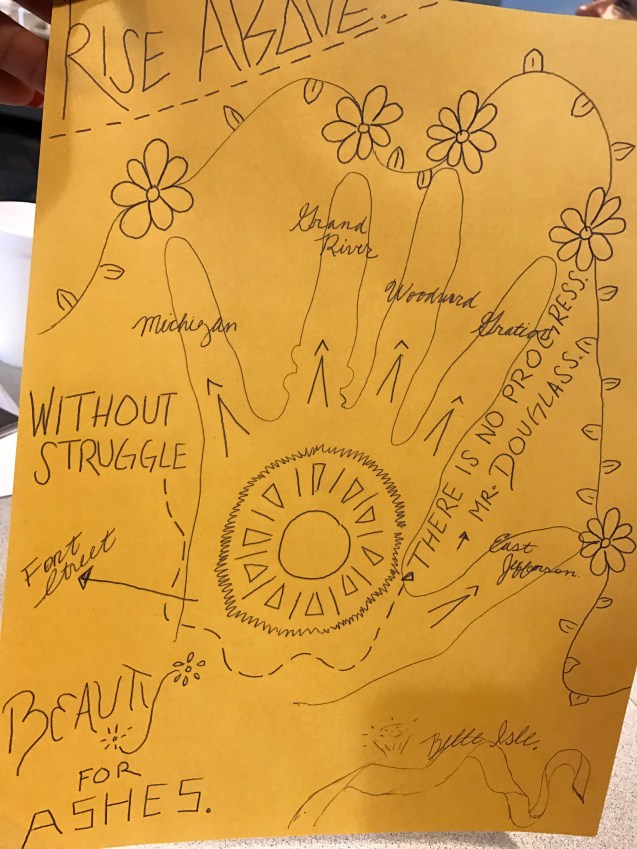 RISE ABOVE.
Michigan
Grand
River
Woodward
Gratiot
WITHOUT
STRUGGLE
THERE IS NO PROGRESS.
→ MR. DOUGLASS.
Fort
Street
East
Jefferson
BEAUTY
FOR
ASHES.
Belle Isle.